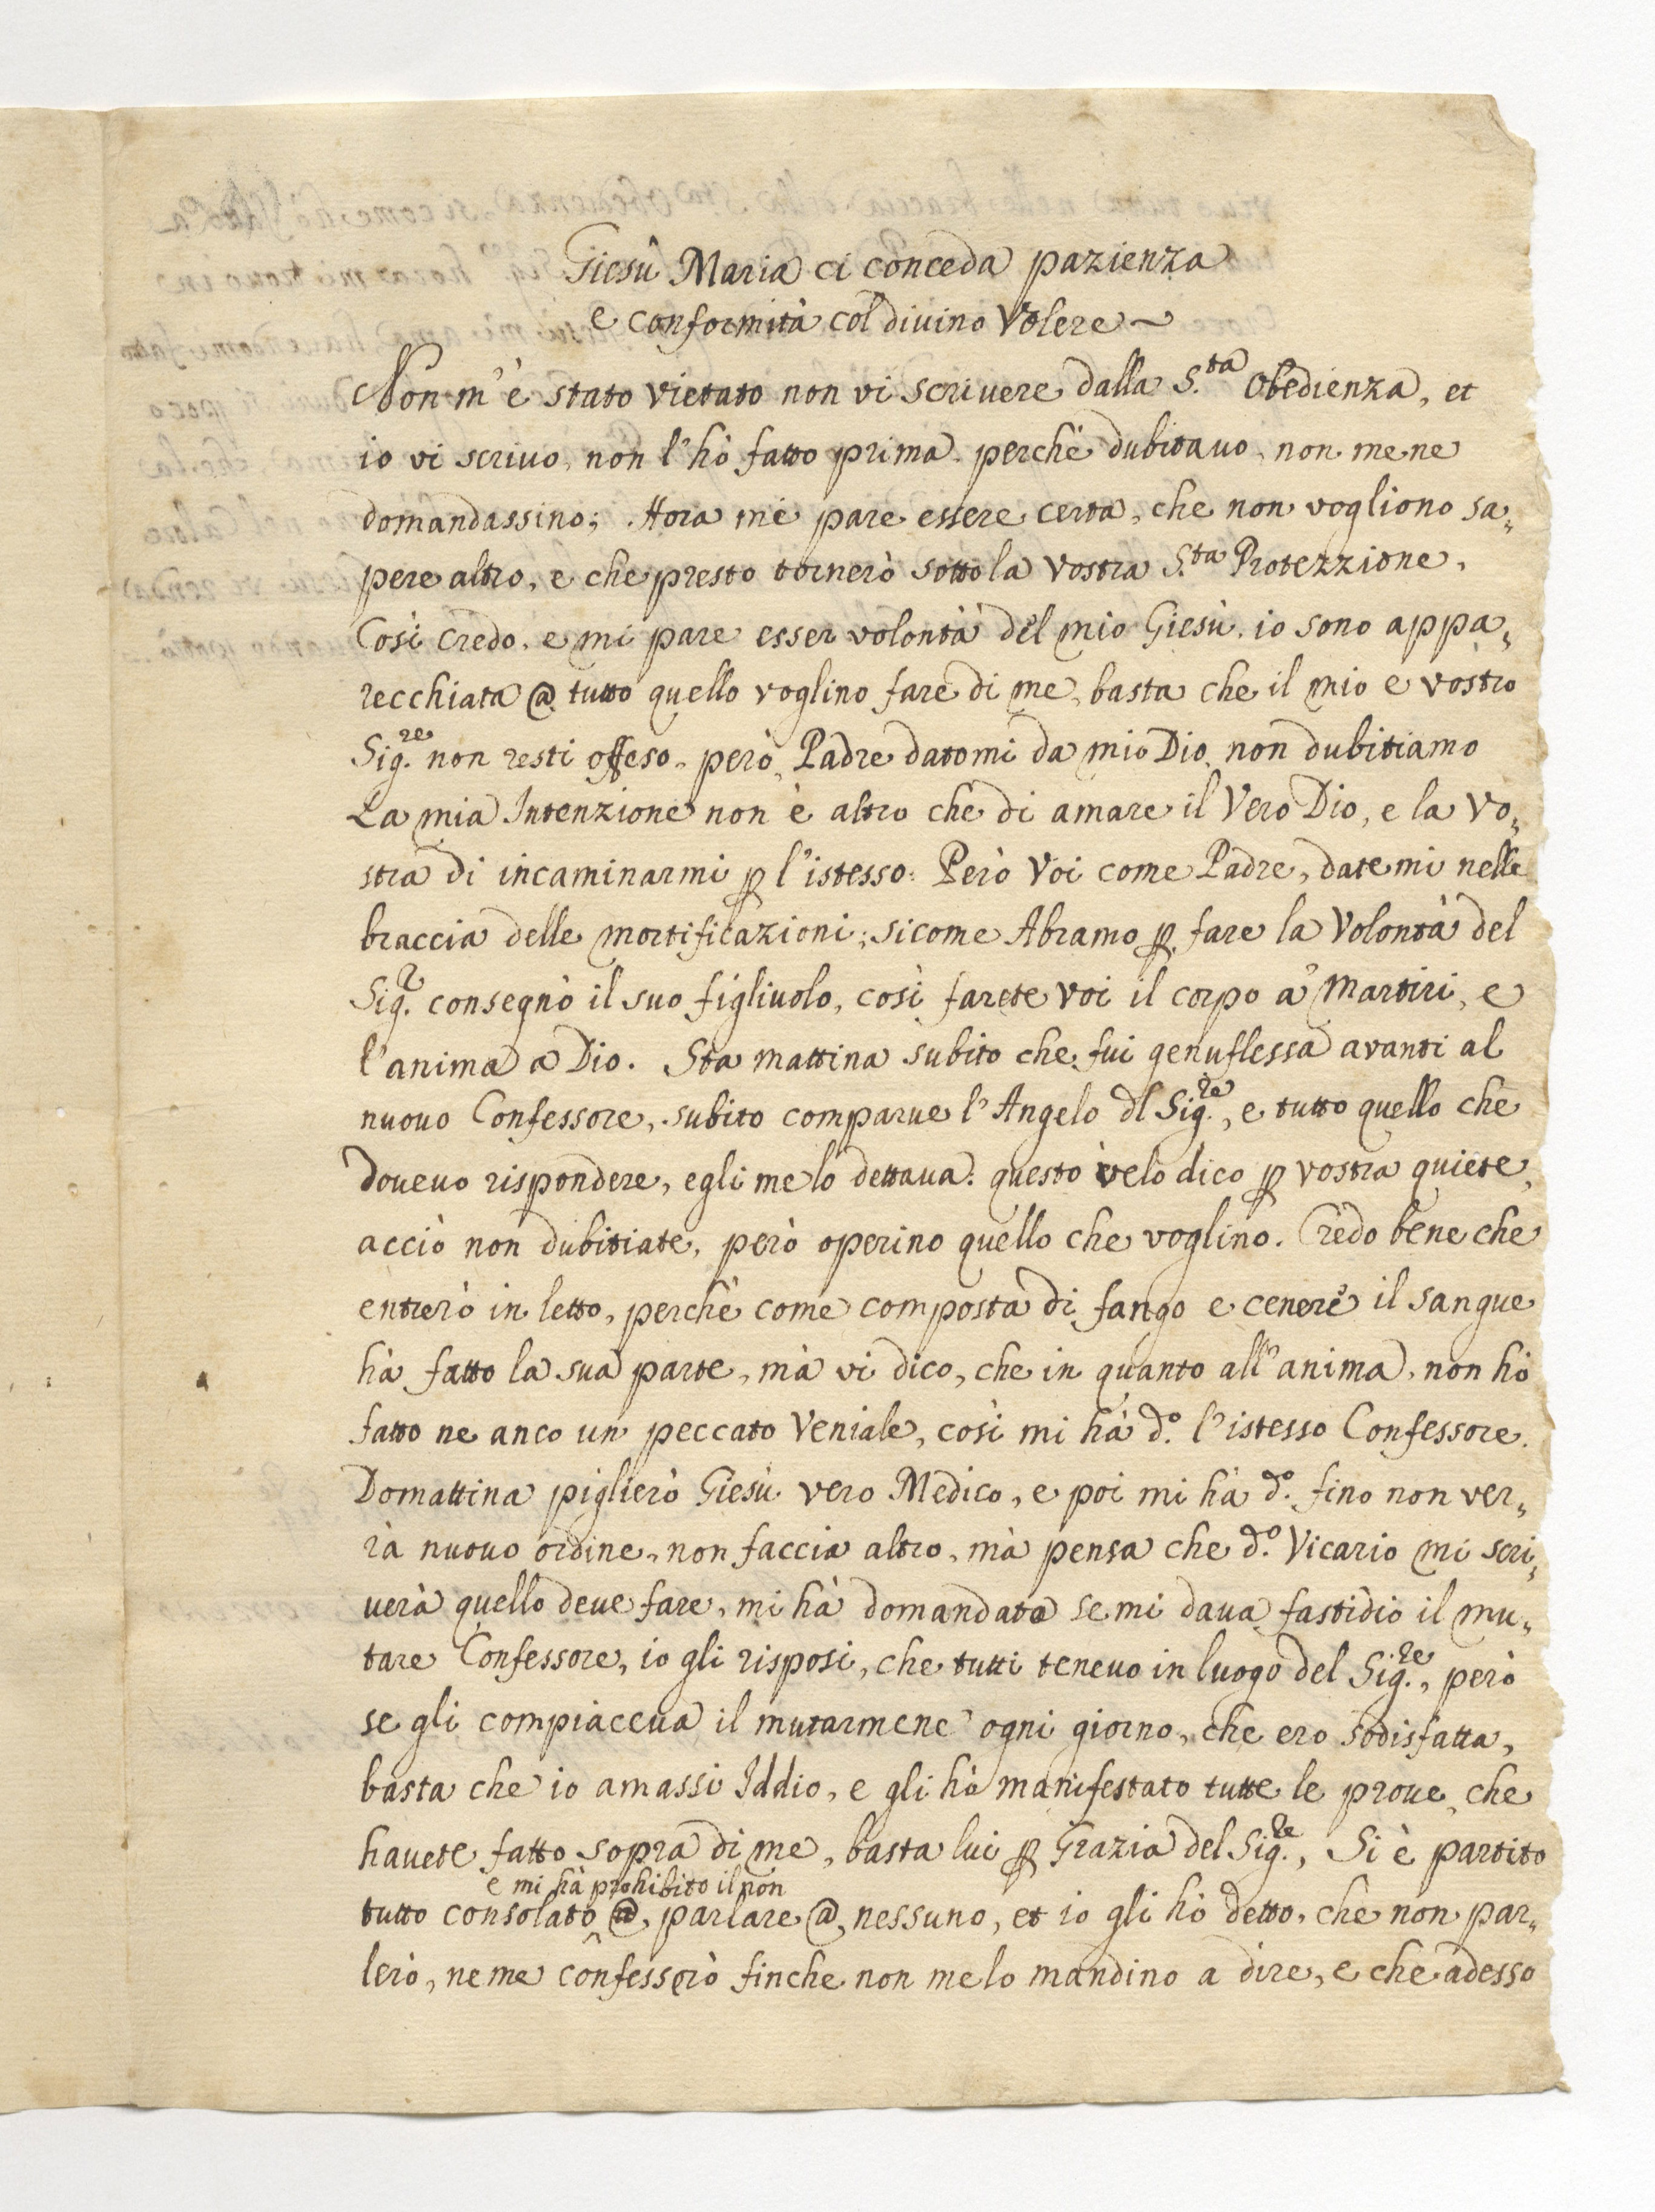 Giesù Maria ci conceda pazienza
e conformità col divino Volere~
Non m'è stato vietato non vi scrivere dalla S.ta Obedienza, et
io vi scrivo, non l'hò fatto prima perchè dubitavo, non me ne
domandassino; Hora me pare essere certa, che non vogliono sa„
pere altro, e che presto tornerò sotto la vostra S.ta Protezzione.
Così credo, e mi pare esser volontà del mio Giesù, io sono appa„
recchiata @ tutto quello voglino fare di me, basta che il mio e vostro
Sig.re non resti offeso, però, Padre datomi da mio Dio, non dubitiamo
La mia Intenzione non è altro che di amare il Vero Dio, e la vo„
stra di incaminarmi ꝑ l'istesso: Però Voi come Padre, datemi nelle
braccia delle mortificazioni; sicome Abramo ꝑ fare la Volontà del
Sig.r consegnò il suo figliuolo, così farete voi il corpo a' Martiri, e
l'anima a Dio. Sta mattina subito che fui genuflessa avanti al
nuouo Confessore, subito comparue l'Angelo dl Sig.re, e tutto quello che
doueuo rispondere, egli me lo dettaua: questo velo dico ꝑ vostra quiete,
acciò non dubitiate, però operino quello che voglino. Credo bene che
entrerò in letto, perchè come composta di fango e cenere il sangue
hà fatto la sua parte, mà vi dico, che in quanto all'anima, non hò
fatto ne anco un peccato Veniale, così mi hà d.o l'istesso Confessore.
Domattina piglierò Giesù vero Medico, e poi mi hà d.o fino non ver„
rà nuouo ordine, non faccia altro, mà pensa che d.o Vicario mi scri„
uerà quello deue fare, mi hà domandato se mi daua fastidio il mu„
tare Confessore, io gli risposi, che tutti teneuo in luogo del Sig.re, però
se gli compiaceua il mutarmene ogni giorno, che ero sodisfatta,
basta che io amassi Iddio, e gli hò manifestato tutte le proue, che
hauete fatto sopra di me, basta lui ꝑ Grazia del Sig.re, Si è partito
e mi hà prohibito il non
tutto consolato @, parlare @ nessuno, et io gli hò detto, che non par„
lerò, ne me confesserò finche non me lo mandino a dire, e che adesso